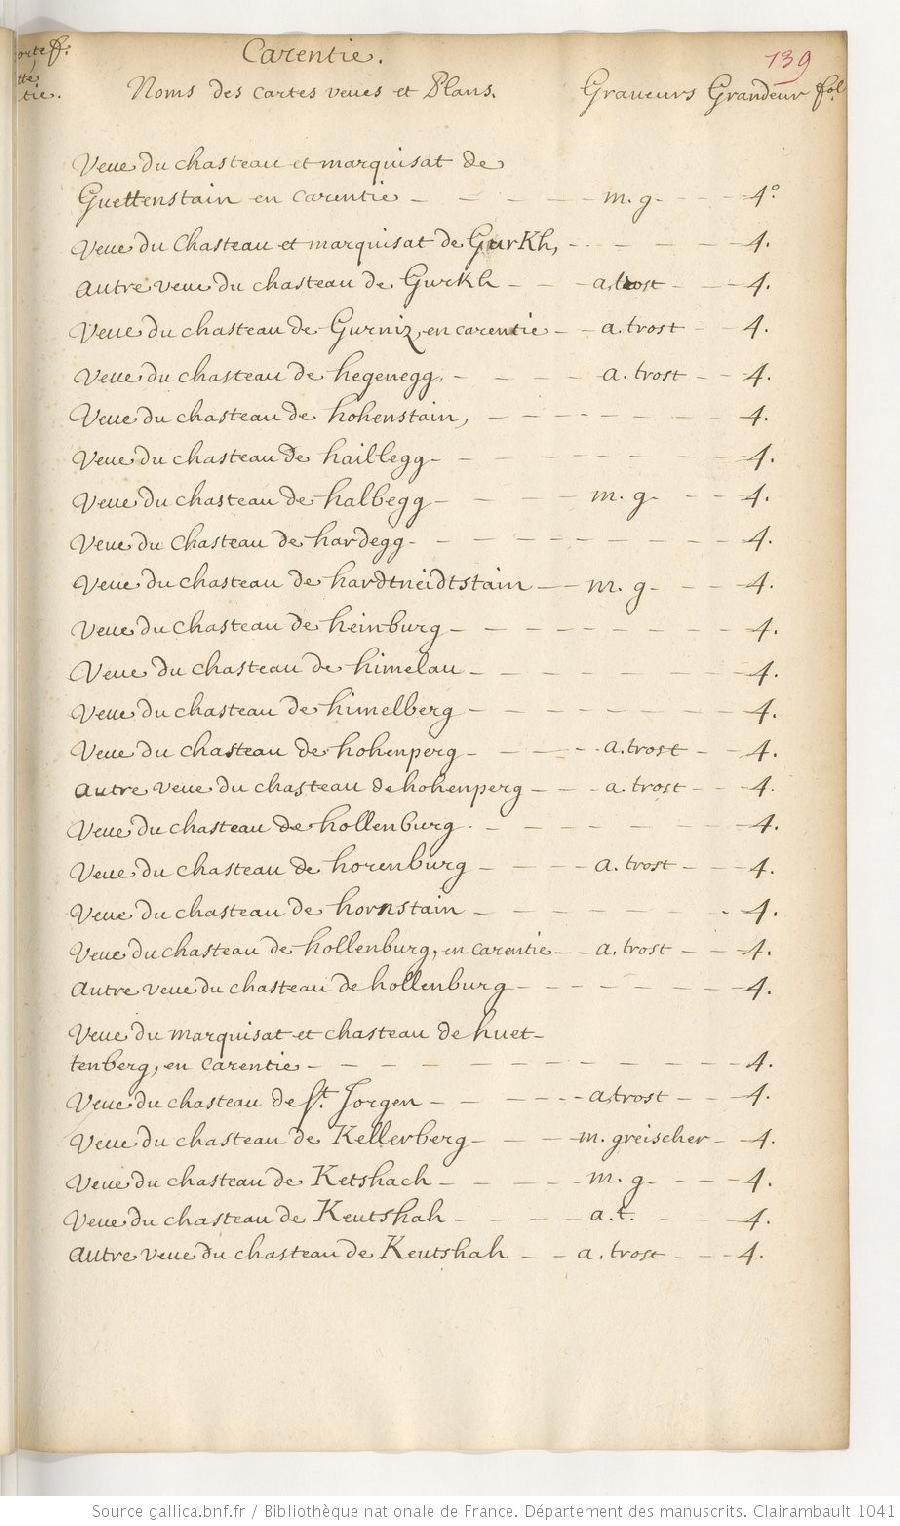 Carentie.
139
Noms des cartes veues et Plans. Graveurs Grandeur fol
Veue du chasteau et marquisat de
Guettenstain en carentie - - - - - m. g. - - - 4°.
Veue du Chasteau et marquisat de Gurkh, - - - - - 4.
autre veue du chasteau de Gurkh - - - a. trost - - - 4.
Veue du chasteau de Gurniz, en carentie - - a. trost - - 4.
Veue du chasteau de hegenegg. - - - - a. trost - - 4.
Veue du chasteau de hohenstain, - - - - - - - 4.
Veue du chasteau de haillegg - - - - - - - 4.
Veue du chasteau de halbegg - - - - m. g. - - - 4.
Veue du Chasteau de hardegg - - - - - - - - 4.
Veue du chasteau de hardtneidtstain - - m. g. - - - 4.
Veue du chasteau de heinburg - - - - - - - 4.
Veue du chasteau de himelau - - - - - - - 4.
Veue du chasteau de himelberg - - - - - - - 4.
Veue du chasteau de hohenperg - - - - a. trost - - 4.
autre veue du chasteau de hohenperg - - - a. trost - - 4.
Veue du chasteau de hollenburg. - - - - - - - 4.
Veue du chasteau de horenburg - - - - a. trost - - 4.
Veue du chasteau de hornstain - - - - - - - 4.
Veue du chasteau de hollenburg, en carentie - - a. trost - - 4.
autre veue du chasteau de hollenburg - - - - - - 4.
Veue du marquisat et chasteau de huet-
tenberg, en carentie - - - - - - - - - - 4.
Veue du chasteau de st. Jorgen - - - - - a. trost - - 4.
Veue du chasteau de Kellerberg - - - m. greischer - 4.
Veue du chasteau de Ketshach - - - - m. g. - - - 4.
Veue du chasteau de Keutshah - - - - a. t. - - 4.
autre veue du chasteau de Keutshah - - a. trost - - - 4.
Source gallica.bnf.fr / Bibliothèque nationale de France. Département des manuscrits. Clairambault 1041